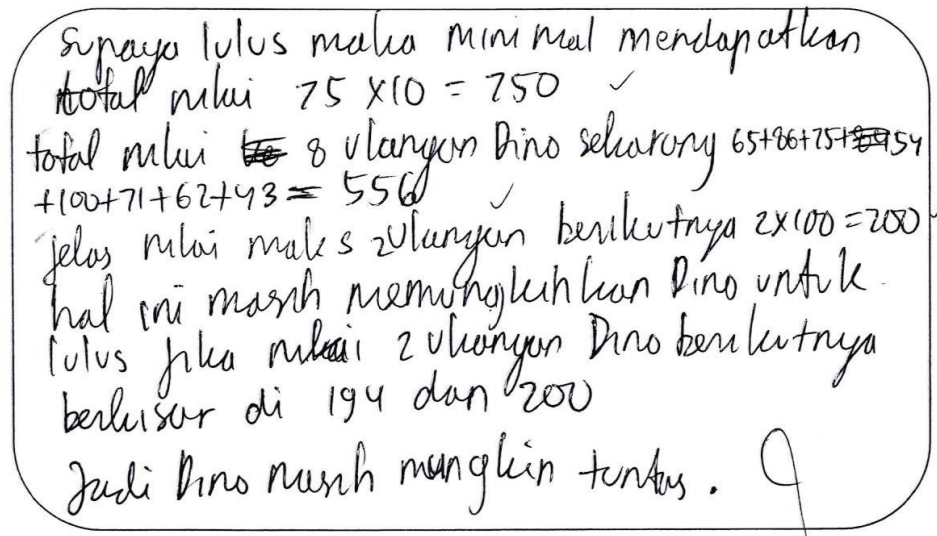 Supaya lulus maka minimal mendapatkan
total nilai 75 X10 = 750 ✓
total nilai 8 ulangan Dino sekarang 65+86+75+54
+100+71+62+43 = 556 ✓
jelas nilai maks 2 ulangan berikutnya 2x100=200
hal ini masih memungkinkan Dino untuk
lulus jika nilai 2 ulangan Dino berikutnya
berkisar di 194 dan 200
Jadi Dino masih mungkin tuntas.